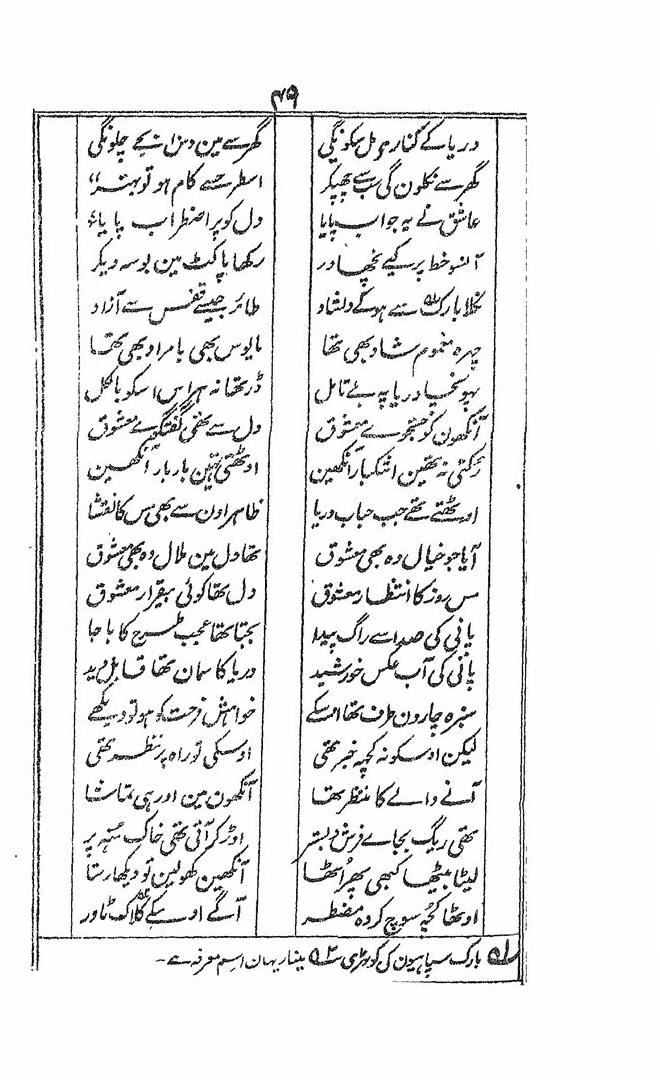 ۴۹
دریا کے کنارہ مل سکونگی گھر سے مین دس بجے چلونگی
گھر سے نکلون گی سب سے چھپکر اسطرح سے کام ہو تو بہتر
عاشق نے یہ جواب پایا دل کو پر اضطراب پایا
آنسو خط پر کیے نچھاور رکھا پاکٹ مین بوسہ دیکر
نکلا بارک سے ہو کے دلشاد طائر جیسے قفس سے آزاد
چہرہ مغموم شاد بھی تھا مایوس بھی بامراد بھی تھا
پہونچا دریا پہ بے تامل ڈر تھا نہ ہراس اسکو بالکل
آنکھون کو جستجوے معشوق دل سے تھی گفتگوے معشوق
رکتی نہ تھین اشکبار آنکھین اوٹھتی تھین بار بار آنکھین
اوٹھتے تھے جب حباب دریا ظاہر اون سے بھی مس کا نقشا
آیا جو خیال وہ بھی معشوق تھا دل مین ملال وہ بھی معشوق
مس روز کا انتظار معشوق دل تھا کوئی بیقرار معشوق
پانی کی صدا سے راگ پیدا بجتا تھا عجب طرح کا باجا
پانی کی آب عکس خورشید دریا کا سمان تھا قابل دید
سبزہ چارون طرف تھا اسکے خواہش فرحت کو ہو تو دیکھے
لیکن اوسکو نہ کچھ خبر تھی اوسکی تو راہ پر نظر تھی
آنے والے کا منتظر تھا آنکھون مین اور ہی تماشا
تھی ریگ بجاے فرش و بستر اوڑ کر آتی تھی خاک منہ پر
لیٹا بیٹھا کبھی پھر اُٹھا آنکھین کھولین تو دیکھا رستا
اوٹھا کچھ سوچ کر وہ مضطر آگے اوسکے کلاک ٹاور
۱ بارک سپاہیون کی کوٹھری ۲ مینار یہان اسم معرفہ ہے۔